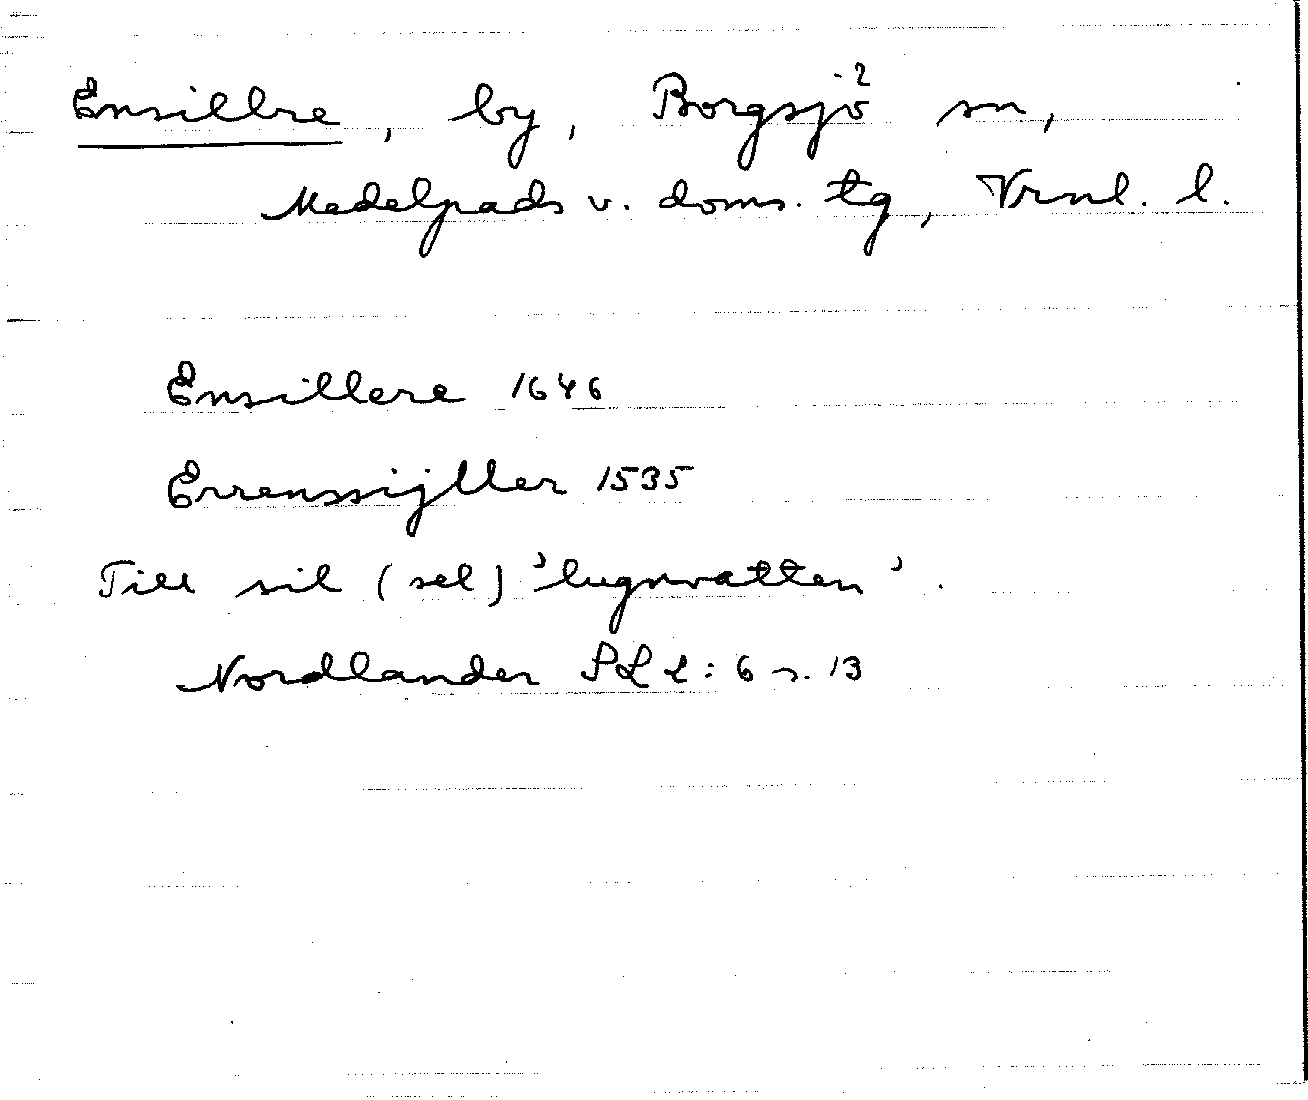 Ensillre, by, Borgsjö sn,
Medelpads v. doms. tg, Vrnl. l.
Ensillere 1646
Errenssijller 1535
Till sil (sel) 'lugnvatten'.
Nordlander 2:6 s. 13